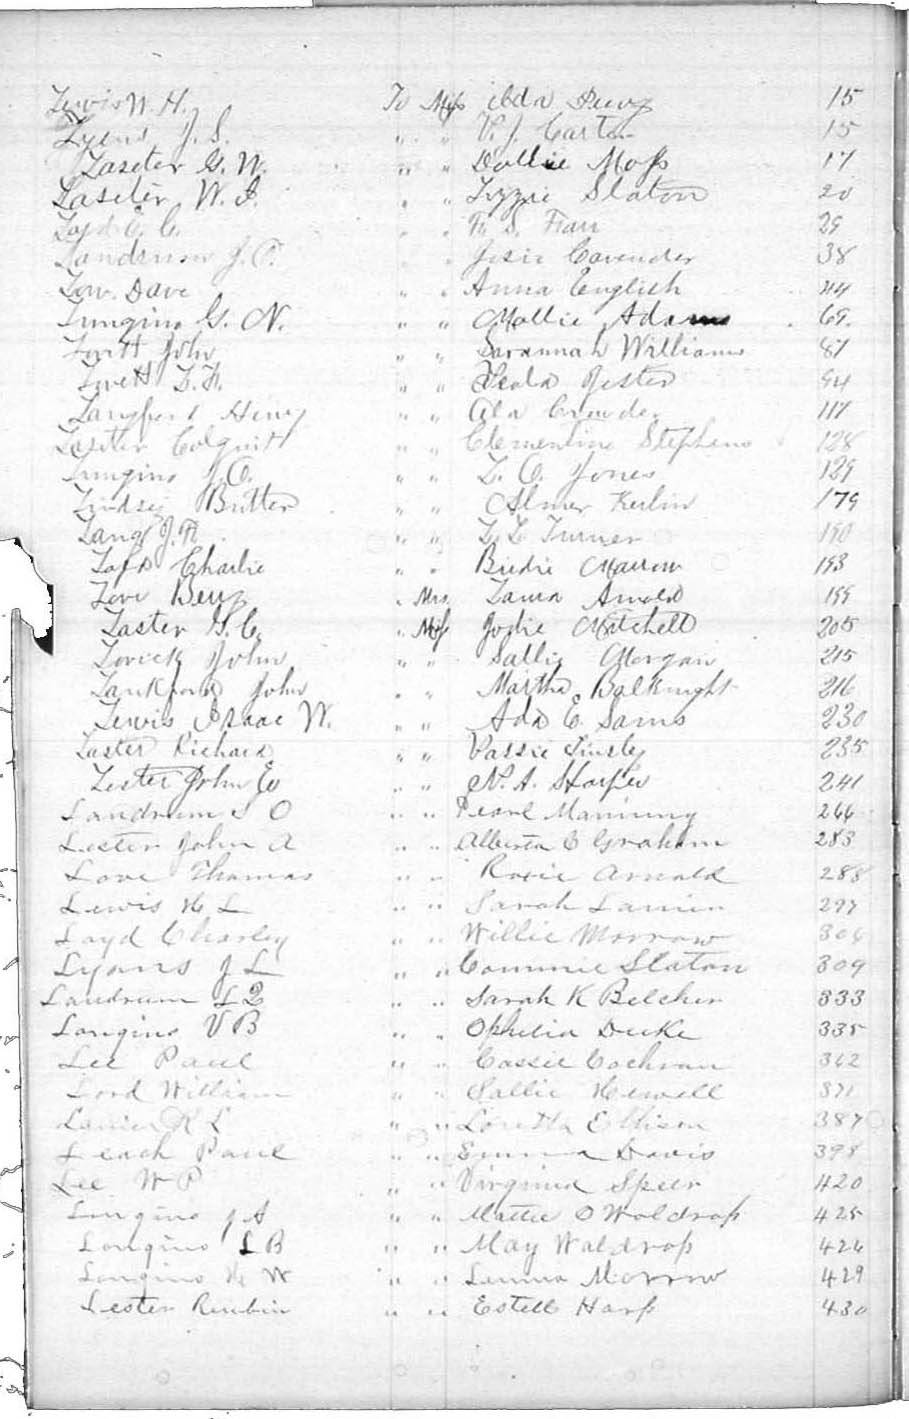 Lewis W. H. To Miss Ada 15
Lyens J. S. " " V. J. Carter 15
Laseter G. W. " " Dollie Moss 17
Laseter W. " " Lizzie Slaton 20
Loyd C. C. " " 29
Landrum J. " " Josie Cavender 38
Low. Dave " " Anna English 44
Lungino G. N. " " Mollie Adams 69.
John " " Savannah Williams 87
" " Jester 94
Langford Henry " " Ola Crowder 117
Laseter Colquitt " " Clementine Stephens 128
Lungino J. O. " " L. O. Jones 129
Lindsey Butter " " Almer Kerlin 179
Lang J. R. " " L. L. Turner 190
Loyd Charlie " " Birdie Marrow 193
Love " Mrs. Laura Arnold 199
Laster G. C. " Miss Jodie Mitchell 205
Lovick John " " Sallie Morgan 215
Lankford John " " Martha Balknight 216
Lewis Isaac W. " " Ada E. Sams 230
Laster Richard " " Vassie Tinsley 235
Lester John E " " N. A. Harper 241
Landrum S O " " Pearl Manning 266
Lester John A " " Alberta C Graham 283
Love Thomas " " Rosie Arnold 288
Lewis H L " " Sarah Lanier 297
Loyd Charley " " Willie Morrow 306
Lyons J L " " Commie Slaton 309
Landrum L Q " " Sarah K Belcher 333
Longino V B " " Ophelia Duke 335
Lee Paul " " Cassie Cochran 362
Lord William " " Sallie Hewell 371
Lanier R L " " Loretta Ellison 387
Leach Paul " " Emma Davis 398
Lee W P " " Virginia Speer 420
Longino J A " " Mattie O Waldrop 425
Longino L B " " May Waldrop 426
Longino H W " " Lamma Morrow 429
Lester Rubin " " Estell Harp 430